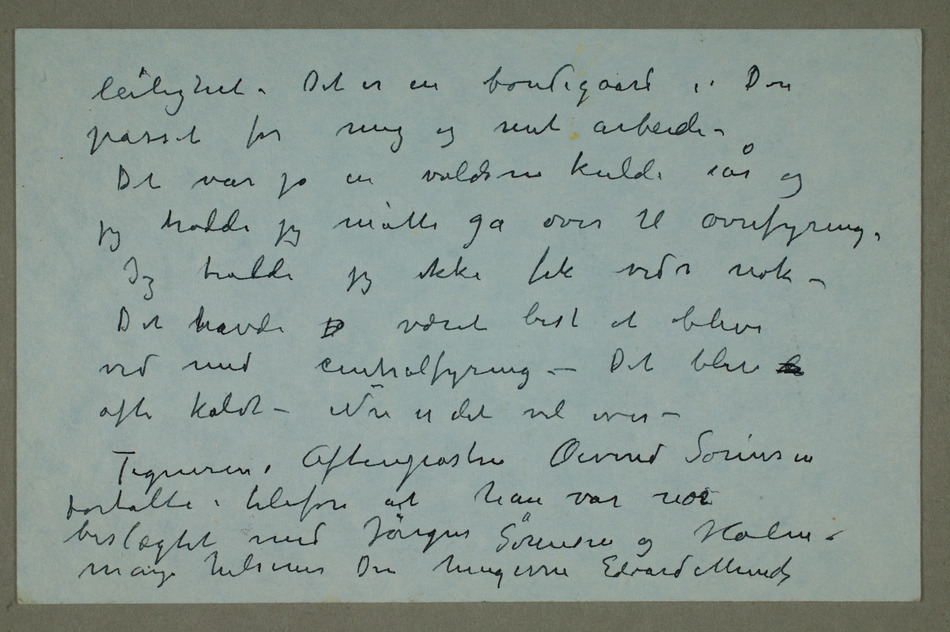 leilighet. Det er en bondegaard i. Den
passet for meg og mit arbeide –
Det var jo en voldsom kulde iår og
jeg trodde jeg måtte ga over til ovnsfyring.
Jeg trodde jeg ikke fik ved nok –
Det havde været best at blive
ved med centralfyring – Det blev
ofte koldt – Nu er det vel over –
Tegneren i Aftenposten Øivind Sørensen
fortalte i telefon at han var nær
beslægtet med Jörgen Sörensen og Holm.
Mange hilsener Din hengivne Edvard Munch